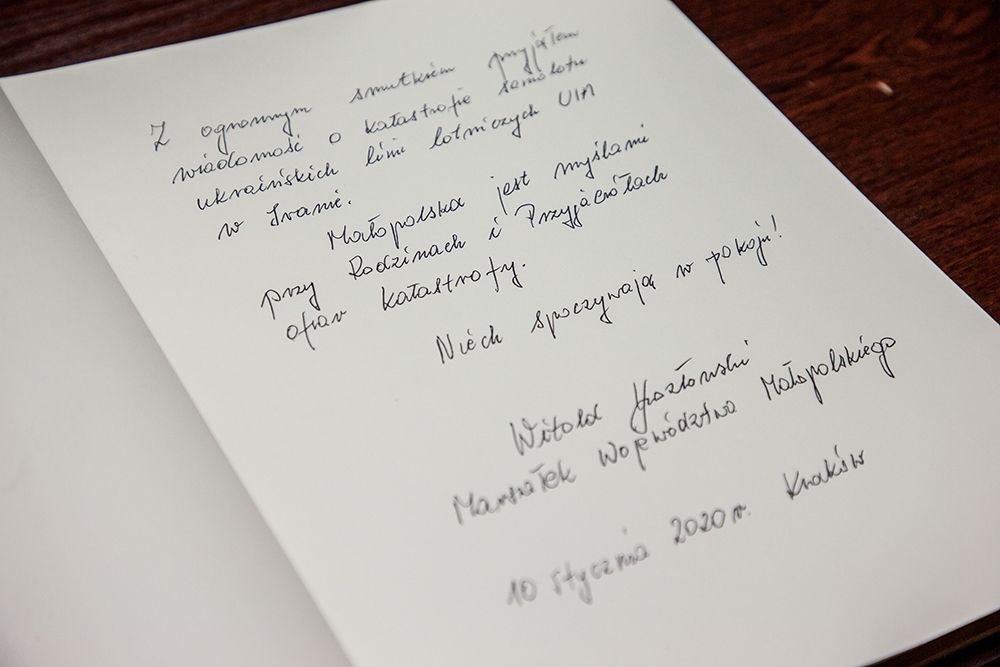 Z ogromnym smutkiem przyjąłem
wiadomość o katastrofie samolotu
ukraińskich linii lotniczych UIA
w Iranie.
Małopolska jest myślami
przy Rodzinach i Przyjaciołach
ofiar katastrofy.
Niech spoczywają w pokoju!
Witold Kozłowski
Marszałek Województwa Małopolskiego
10 stycznia 2020 r. Kraków